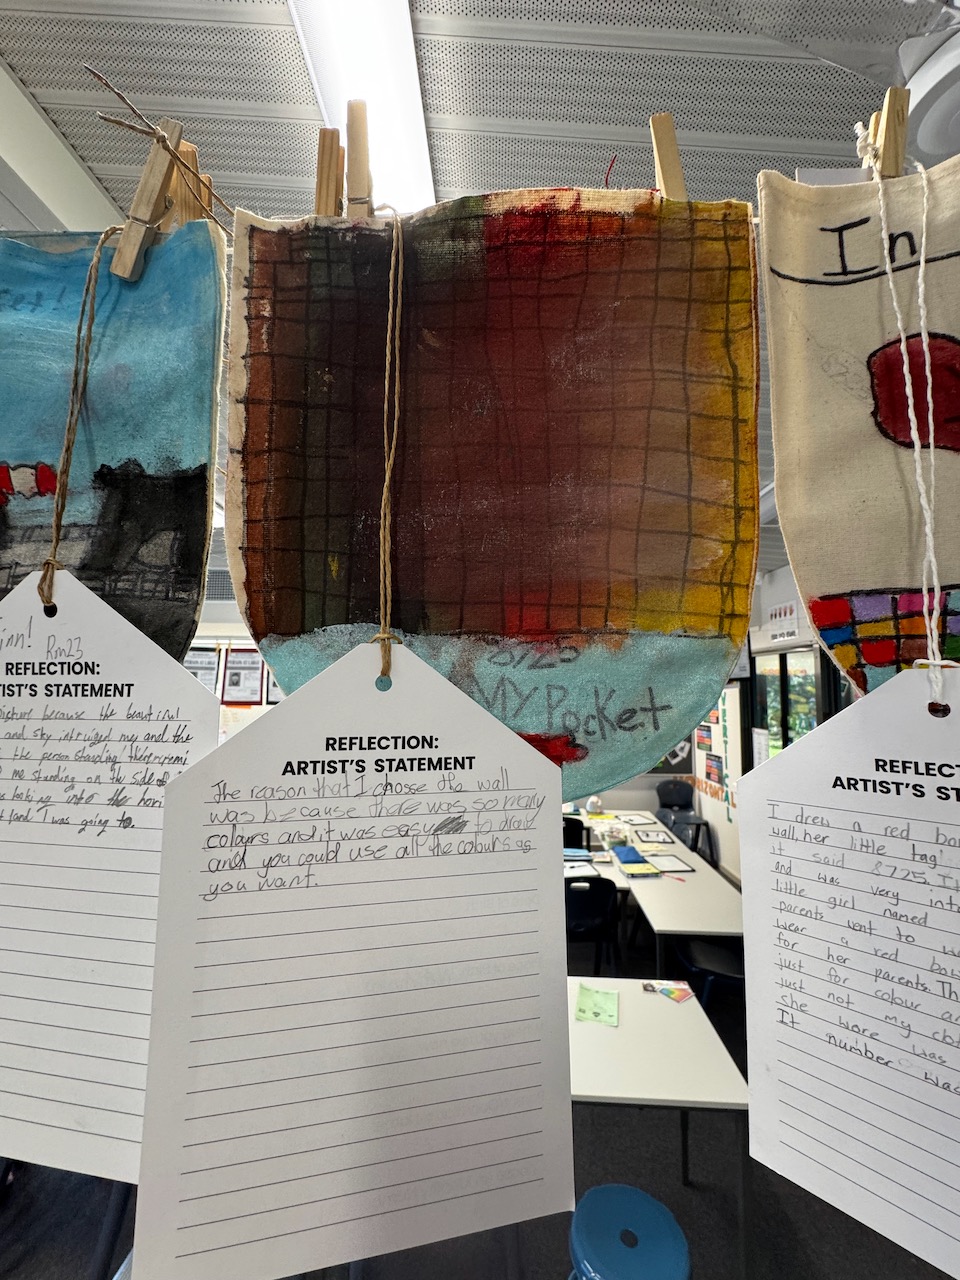 In
8725
MY PocKet
Rm23
REFLECTION:
TIST'S STATEMENT
picture because the beautiful
and sky intruiged my and the
the person standing there
me standing on the side of
looking into the hori
land I was going to.
REFLECTION:
ARTIST'S STATEMENT
The reason that I choose the wall
was because there was so many
colours and it was easy to draw
and you could use all the colours as
you want.
REFLECT
ARTIST'S ST
I drew a red bo
wall, her little tag
it said 8725. Th
and was very inte
little girl named
parents went to w
wear a red bow
for her parents. Th
just for colour an
just not my clot
she wore was
It number was